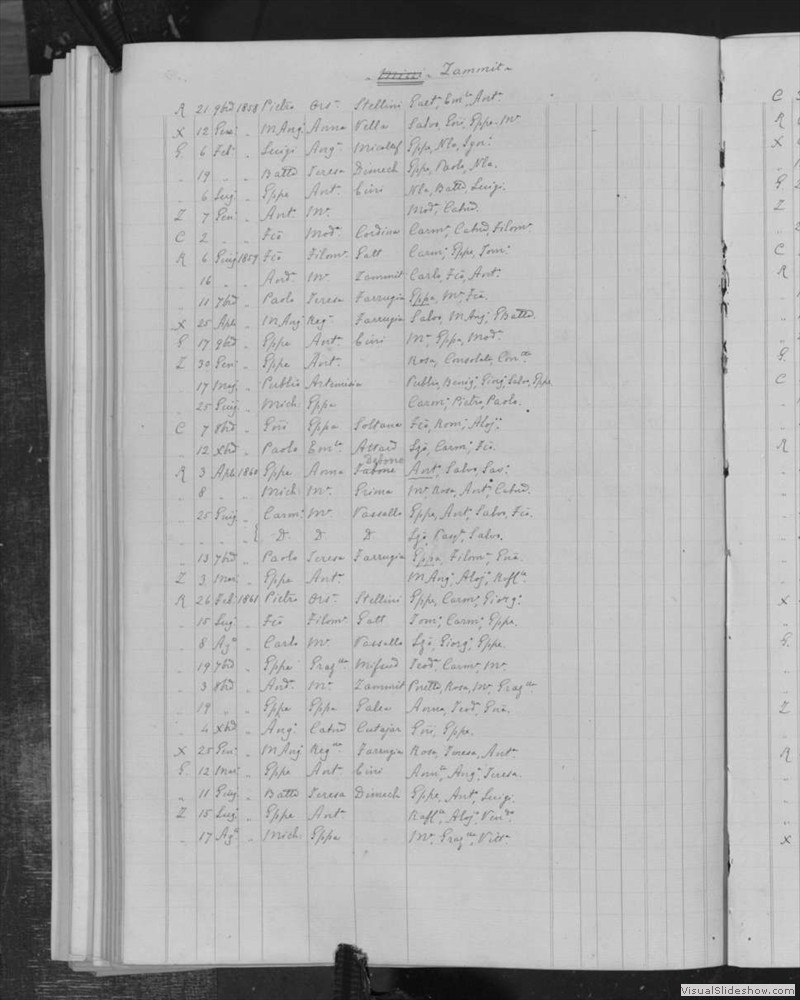 Zammit
R 21 9bd 1858 Pietro Ors.ª Stellini Gaet.º, Em.la, Ant.
X 12 Gen. „ M. Ang. Anna Vella Salvo, Gio, Eppa, M.ª
G. 6 Feb. „ Luigi Ang.ª Micallef Eppa, Nla,
„ 19 „ „ Batta Teresa Dimech Eppe, Paolo, Nla.
„ 6 Lug. „ Eppe Ant. Ciini Nla, Batta, Luigi.
Z 7 Gen. „ Ant. M.ª Mod.ª, Catnd.
C 2 „ „ Fco Mod.ª Cordina Carm.ª, Catnd, Filom.ª
R 6 Giug 1859 Fco Filom.ª Gatt Carm.ª, Eppe, Tom.
„ 16 „ „ And. M.ª Zammit Carlo, Fco, Ant.
„ 11 7bd „ Paolo Teresa Farrugia Eppa, M.ª Fca.
X 25 Apl. „ M. Ang. Reg.ª Farrugia Salvo, M. Ang., Batta.
G 17 9bd „ Eppe Ant. Ciini M.ª, Eppa, Mod.ª
Z 30 Gen. „ Eppe Ant. Rosa, Consolata, Con.tta
„ 17 Mag. „ Publio Artemisia Publio, Benig., Giorg., Salvo, Eppe
„ 25 Giug. „ Mich. Eppa Carm., Pietro, Paolo.
C 7 8bd „ Gio Eppa Soltana Fco, Rom., Aloj.
„ 12 Xbd „ Paolo Em.la Attard Lza, Carm., Fco.
Debono
R 3 Apl. 1860 Eppe Anna Tabone Ant. Salvo, Sav.
„ 8 „ „ Mich. M.ª Grima M.ª, Rosa, Ant. Catnd.
„ 25 Giug. „ Carm. M.ª Vassallo Eppa, Ant., Salvo, Fco.
„ „ „ „ { D. D. D. Lza, Pasq., Salvo.
„ 13 7bd „ Paolo Teresa Farrugia Eppa, Filom.ª,
Z 3 Mar. „ Eppe Ant. M. Ang., Aloj., Raff.la
R 26 Feb. 1861 Pietro Ors.ª Stellini Eppe, Carm., Giorg.
„ 15 Lug. „ Fco Filom.ª Gatt Tom., Carm., Eppe.
„ 8 Ag.º „ Carlo M.ª Vassallo Lza, Giorg., Eppe.
„ 19 7bd „ Eppe Graz.la Mifsud Teod., Carm., M.ª
„ 3 8bd „ And. M.ª Zammit Rosa, M.ª, Graz.la
„ 19 „ „ Eppe Eppa Galea Anna, Teod.
„ 4 Xbd „ Ang. Catnd Cutajar Gio, Eppa.
X 25 Gen. „ M. Ang. Reg.na Farrugia Rosa, Teresa, Ant.
G. 12 Mar. „ Eppe Ant. Ciini Ann.la, Ang., Teresa.
„ 11 Giug. „ Batta Teresa Dimech Eppe, Ant., Luigi.
Z 15 Lug. „ Eppe Ant. Raff.la, Aloj.
„ 17 Ag.º „ Mich. Eppa M.ª, Graz.la, Vitt.
C
R
X
G
Z
C
R
G.
C
R
X
G.
Z
R
X
VisualSlideshow.com